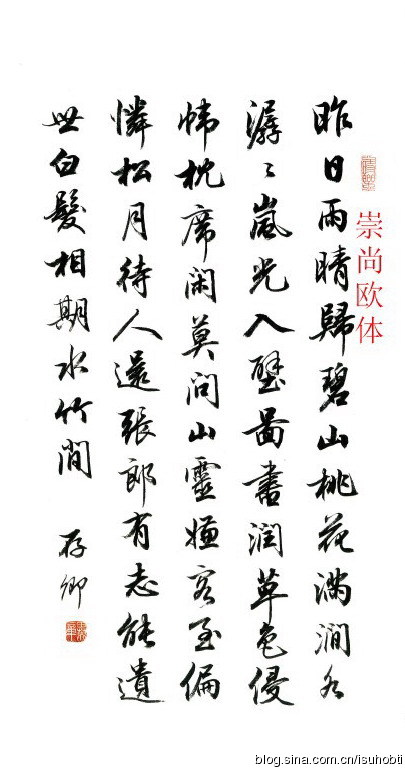 昨日雨晴歸碧山桃花滿澗水
潺〻嵐光入壁圖書潤草色侵
帏枕席闲莫问山靈嫌客至偏
憐松月待人還張郎有志能遺
世白髮相期水竹間
存卿
崇尚欧体
blog.sina.com.cn/isuhobti